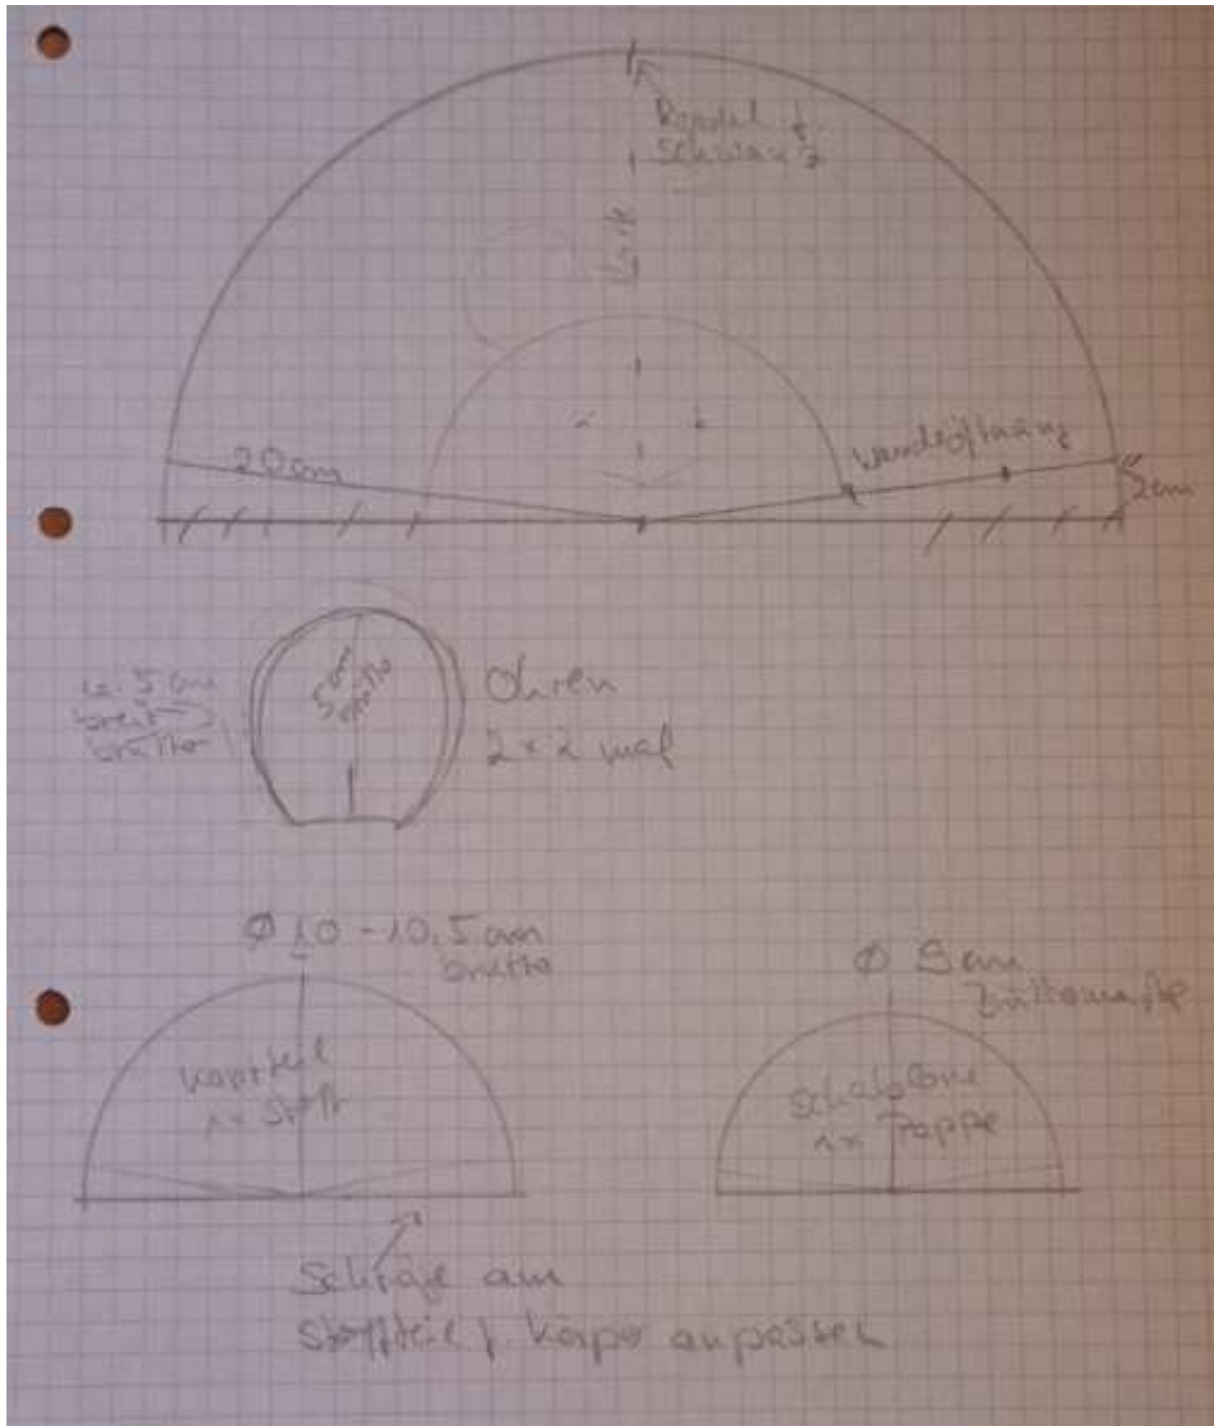 Kordel f.
Schwanz
20 cm
Wendeöffnung
2cm
ca. 5 cm
breit
brutto
5 cm
brutto
Ohren
2 x 2 mal
Ø 10 - 10,5 cm
brutto
Kopfteil
1x Stoff
Ø 8 cm
Schablone
1x Pappe
Schräge am
Stoffteil f. Körper anpassen